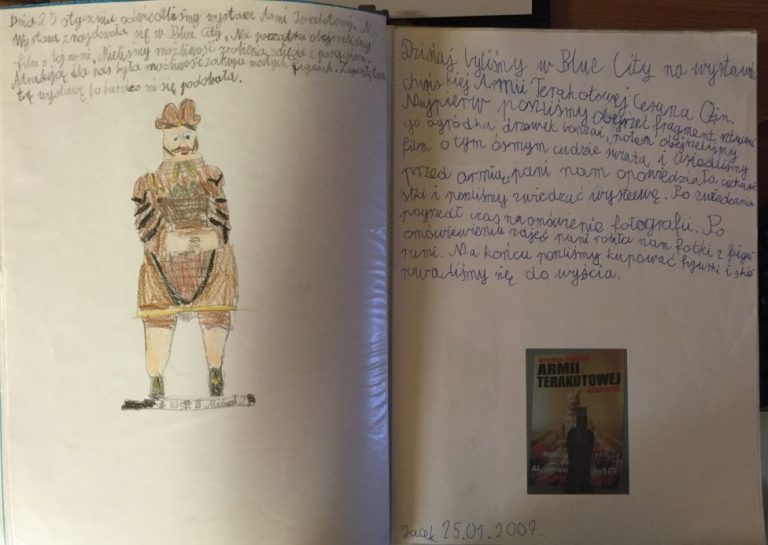 Dnia 25 stycznia odwiedziliśmy wystawę Armi Terakotowej. Na
Wystawa znajdowała się w Blue City. Na początku obejrzeliśmy
film o tej armi. Mieliśmy możliwość zrobienia zdjęcia z posągiem.
Atrakcją dla nas była możliwość zakupu małych figurek. Zapamiętam
tę wystawę bo bardzo mi się podobała.
Michał
Dzisiaj byliśmy w Blue City na wystawie
chińskiej Armii Terakotowej Cesarza Qin.
Najpierw poszliśmy obejrzeć fragment
go ogródka drzewek bonzai, potem obejrzeliśmy
film o tym ósmym cudzie świata i usiedliśmy
przed armią, pani nam opowiedziała ciekawo
stki i poszliśmy zwiedzać wystawę. Po zwiedzaniu
przyszedł czas na omówienie fotografii. Po
omówieniu zdjęć pani robiła nam fotki z figu
rami. Na końcu poszliśmy kupować figurki i skie
rowaliśmy się do wyjścia.
ARMII
TERAKOTOWEJ
Jacek 25.01.2007.